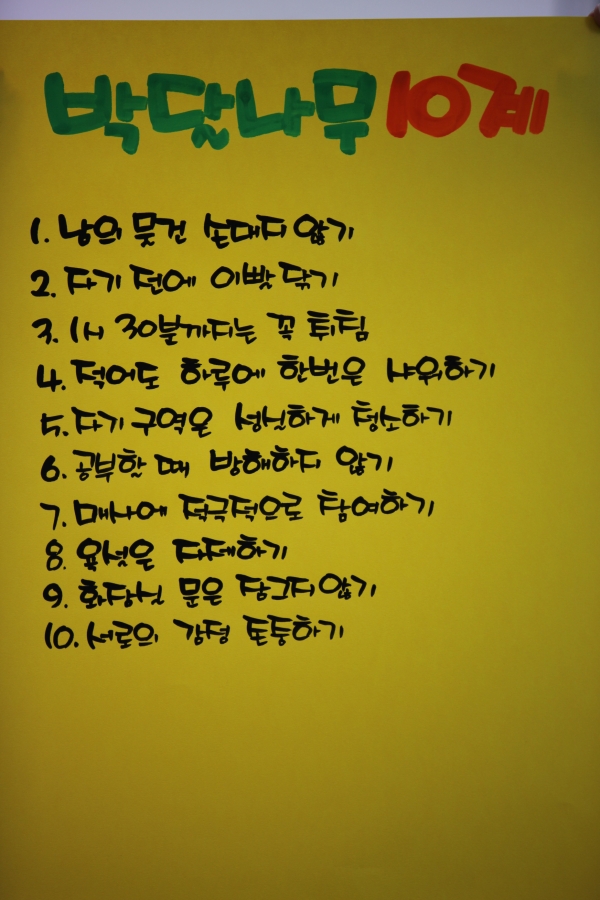 박달나무 10계
1. 남의 물건 손대지 않기
2. 자기 전에 이빨 닦기
3. 1시 30분까지는 꼭 취침
4. 적어도 하루에 한번은 샤워하기
5. 자기 구역은 성실하게 청소하기
6. 공부할 때 방해하지 않기
7. 매사에 적극적으로 참여하기
8. 욕설은 자제하기
9. 화장실 문은 잠그지 않기
10. 서로의 감정 존중하기